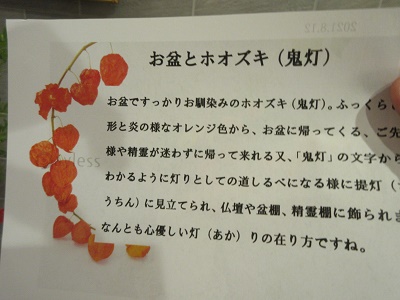 2021.8.12
お盆とホオズキ（鬼灯）
お盆ですっかりお馴染みのホオズキ（鬼灯）。ふっくら、
形と炎の様なオレンジ色から、お盆に帰ってくる、ご先
様や精霊が迷わずに帰って来れる又、「鬼灯」の文字から
わかるように灯りとしての道しるべになる様に提灯（
うちん）に見立てられ、仏壇や盆棚、精霊棚に飾られま
なんとも心優しい灯（あか）りの在り方ですね。